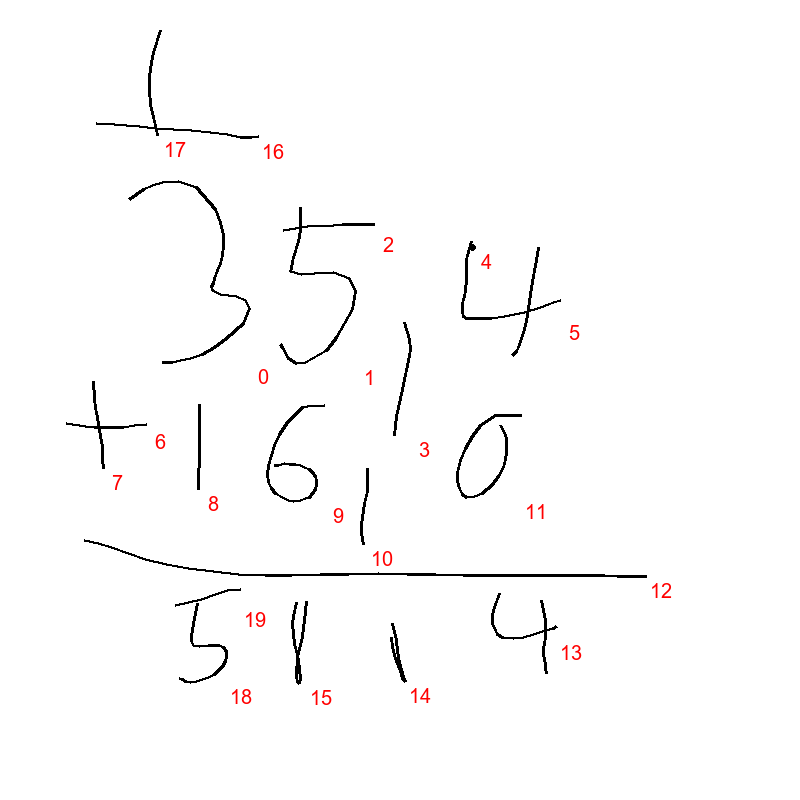 1
17 16
35,4
2 4
5
0 1
3
+ 16,0
6
7 8 9 11
10
12
51,4
19 13
18 15 14